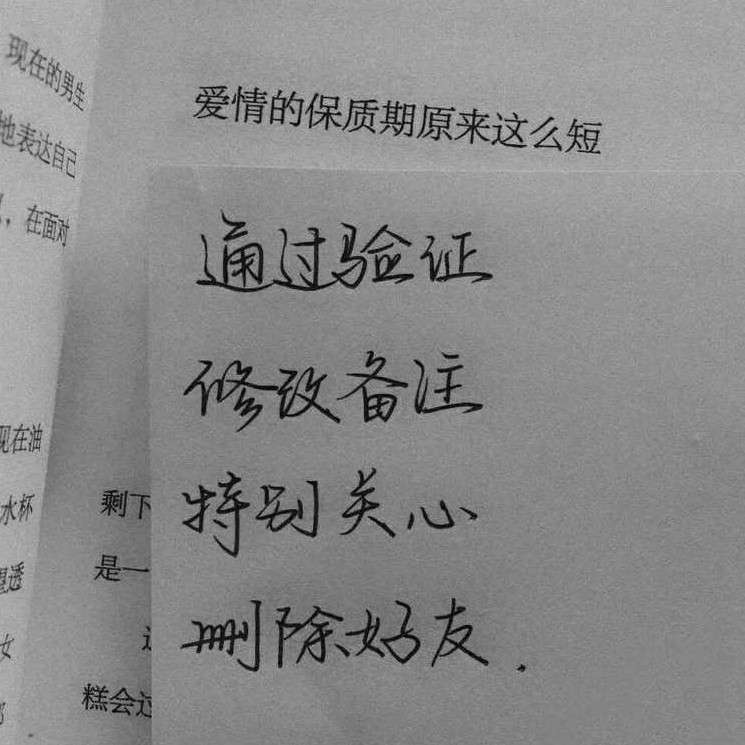 现在的男生
地表达自己
,在面对
现在油
水杯
透
女
爱情的保质期原来这么短
通过验证
修改备注
特别关心
删除好友.
剩下
是一
糕会过